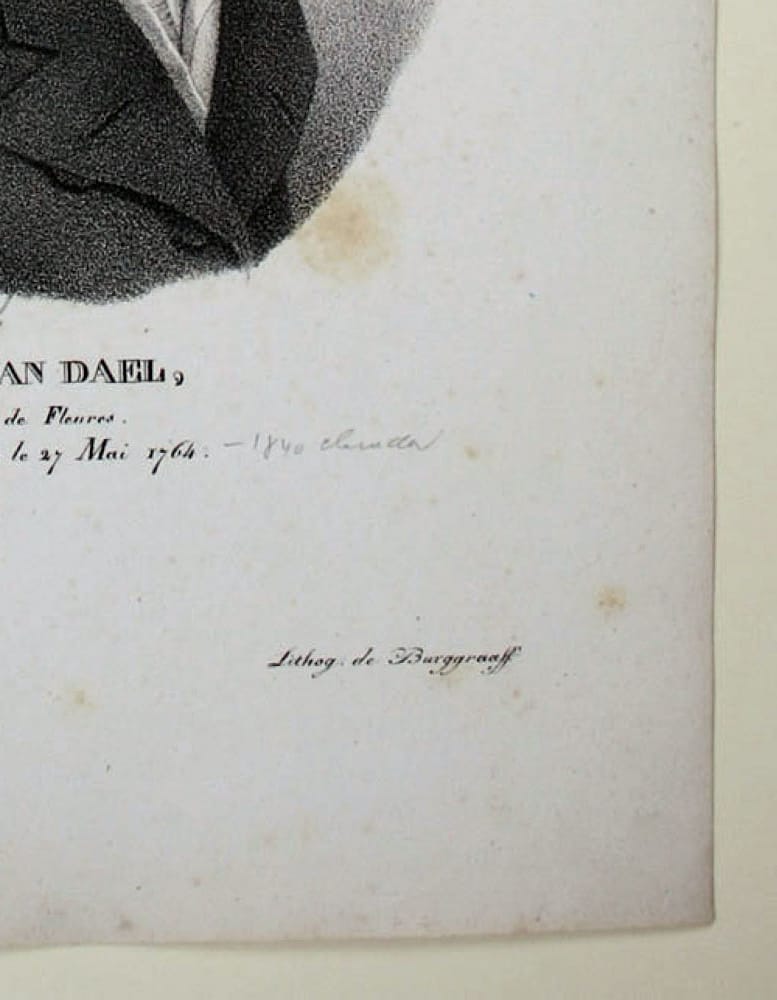 AN DAEL,
de Fleures.
le 27 Mai 1764. – 1840
Lithog. de Burggraaff